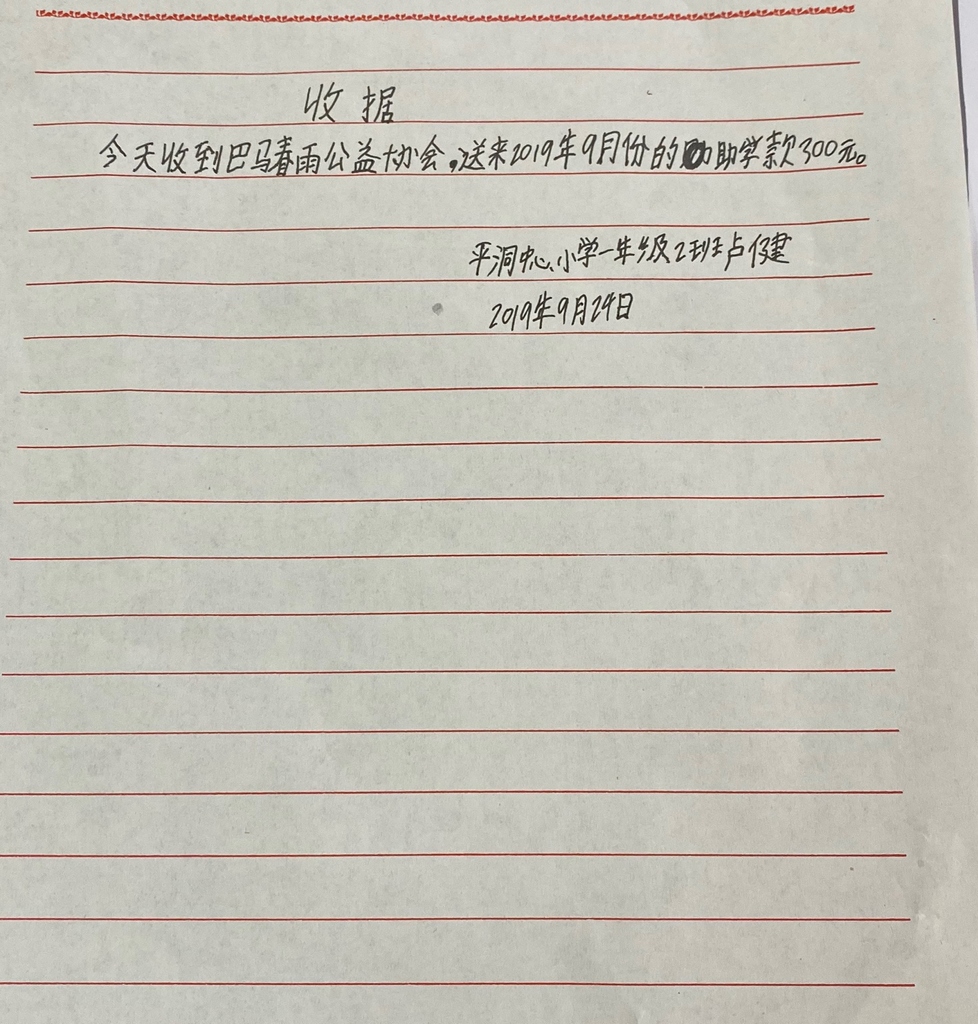 收据
今天收到巴马春雨公益协会,送来2019年9月份的助学款300元。
平洞中心小学一年级2班卢健
2019年9月24日